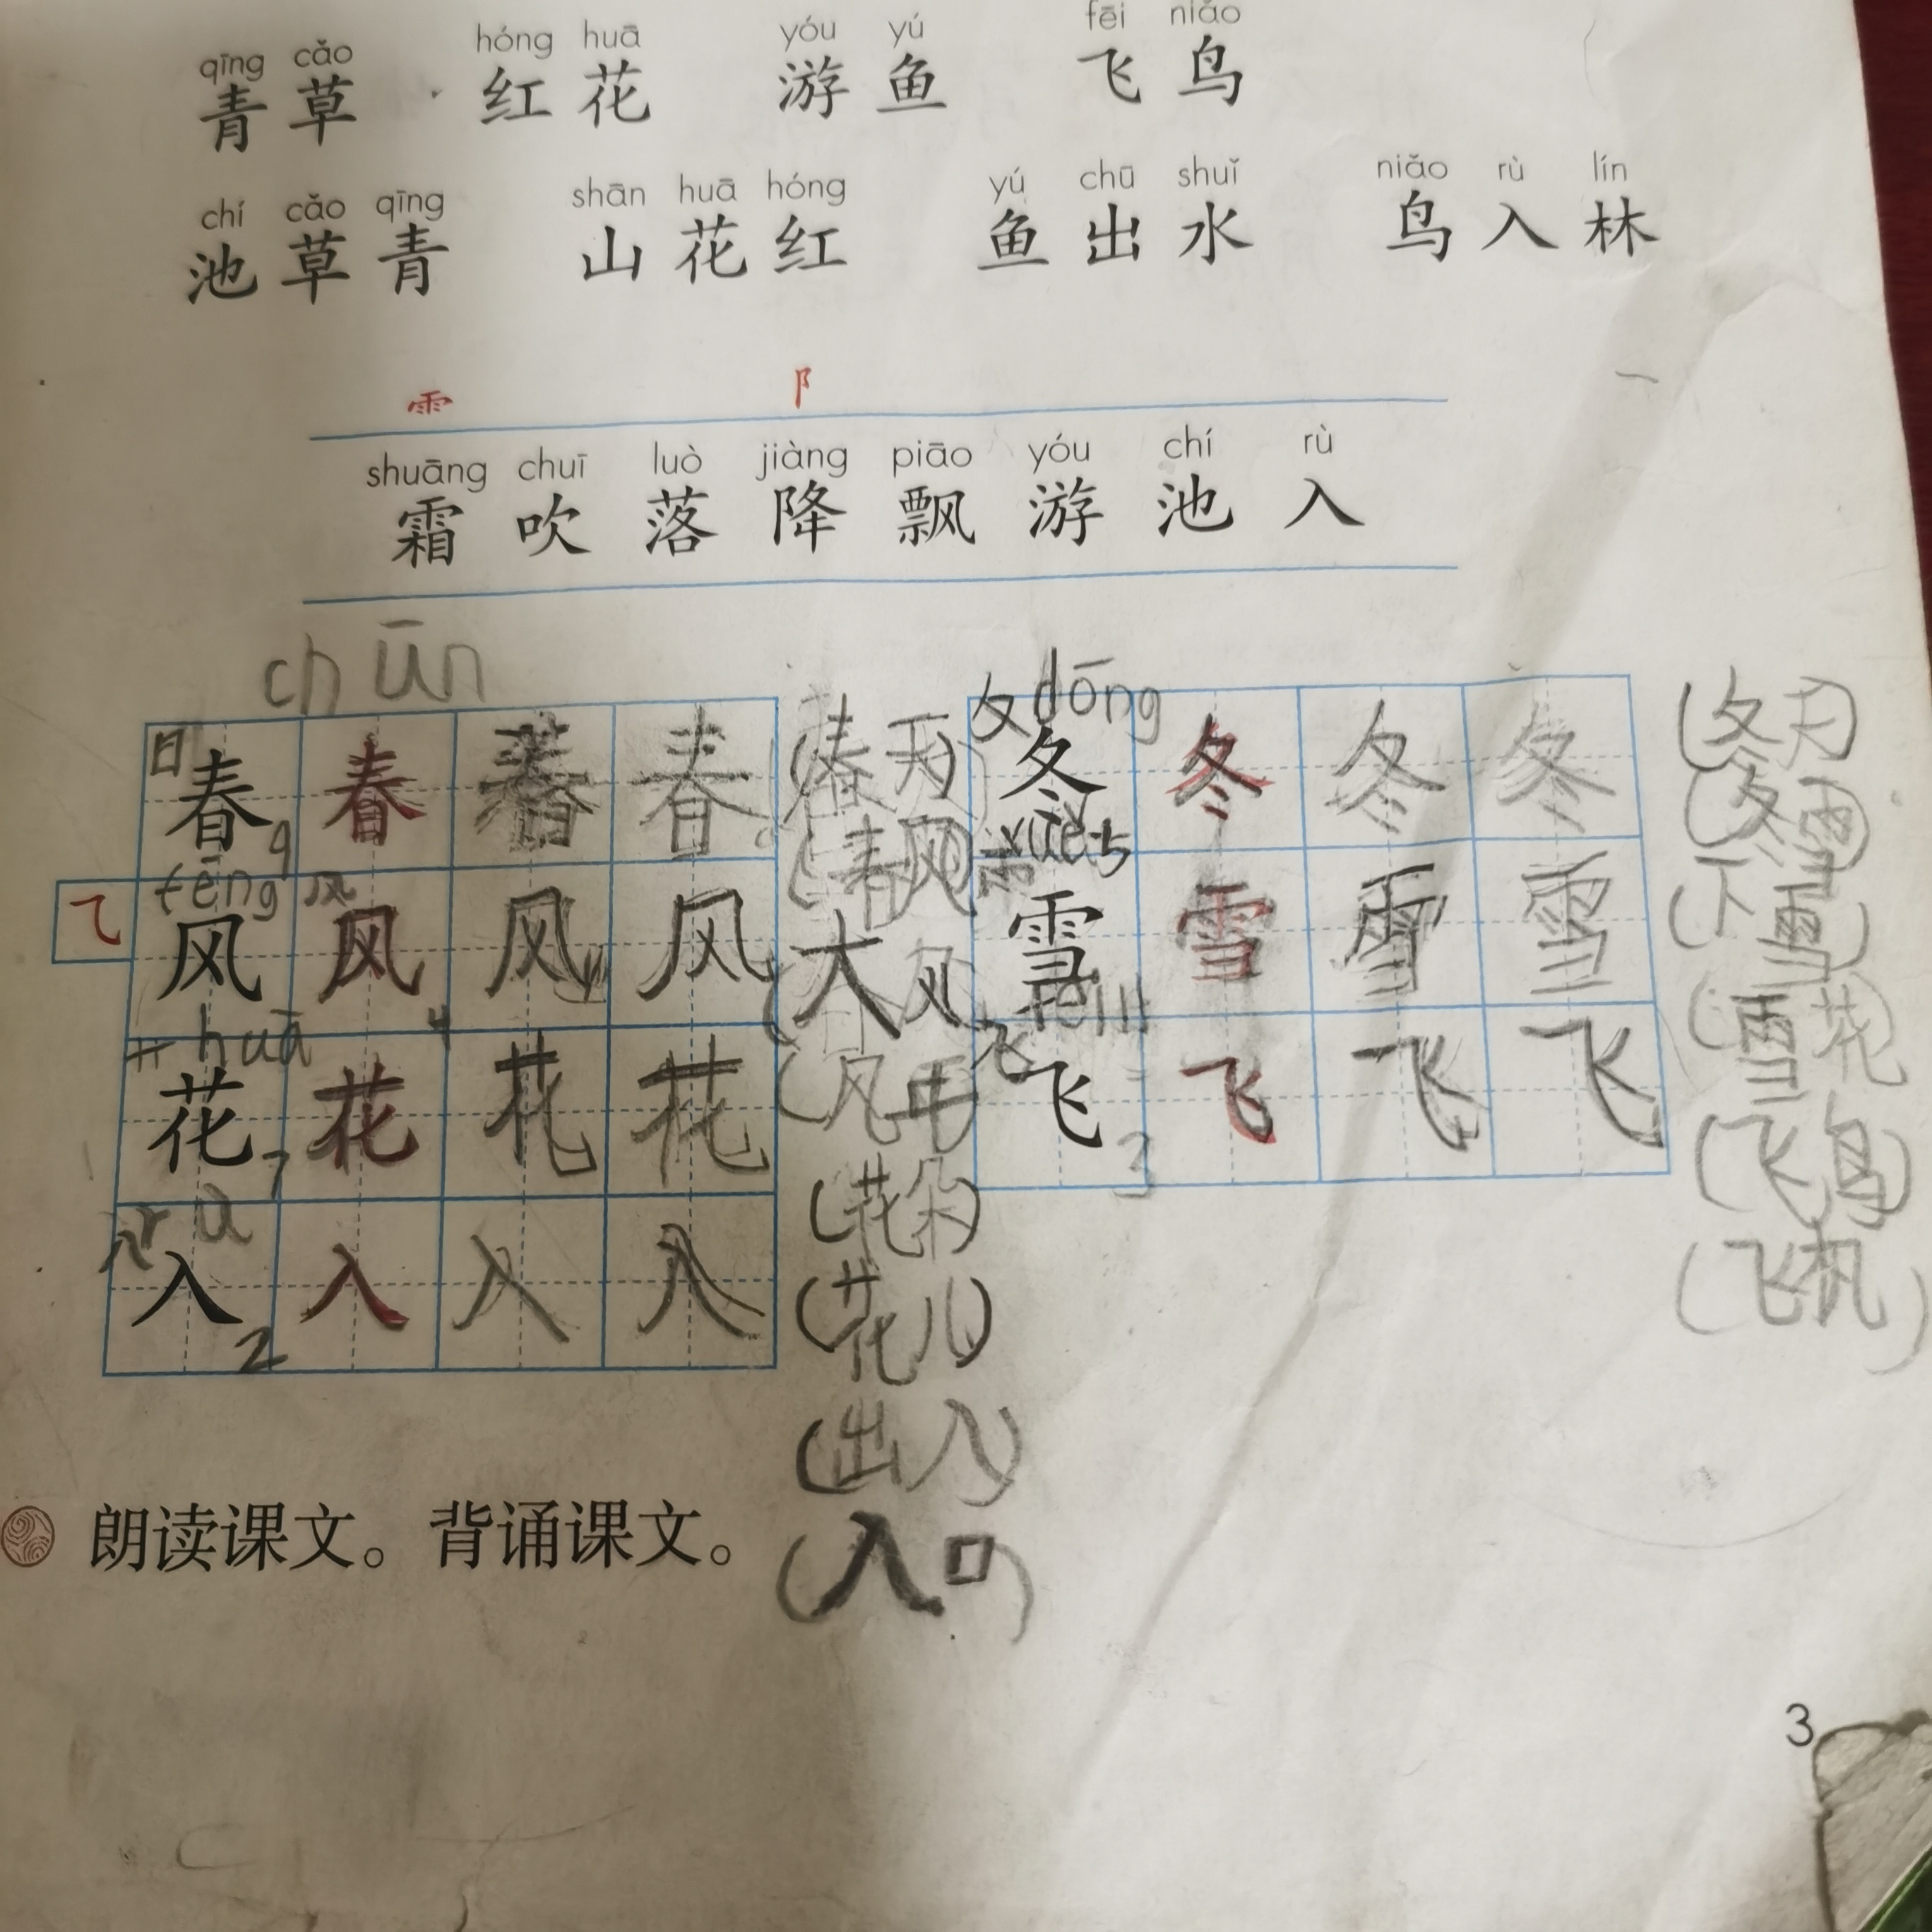 qīng cǎo hóng huā yóu yú fēi niǎo
青草 红花 游鱼 飞鸟
chí cǎo qīng shān huā hóng yú chū shuǐ niǎo rù lín
池草青 山花红 鱼出水 鸟入林
⻗ 阝
shuāng chuī luò jiàng piāo yóu chí rù
霜 吹 落 降 飘 游 池 入
chūn
日 春 9 春 春 春
(春天)
(春风)
fēng 风
⺄ 风 4 风 风 风
(大风)
艹 huā
花 7 花 花 花
(风车)
(花朵)
rù
入 2 入 入 入
(花儿)
(出入)
(入口)
夂 dōng 5
冬 冬 冬 冬
(冬天)
(冬雪)
雪 雪 雪 雪
(下雪)
(雪花)
飞 3 飞 飞 飞
(飞鸟)
(飞机)
朗读课文。背诵课文。
3